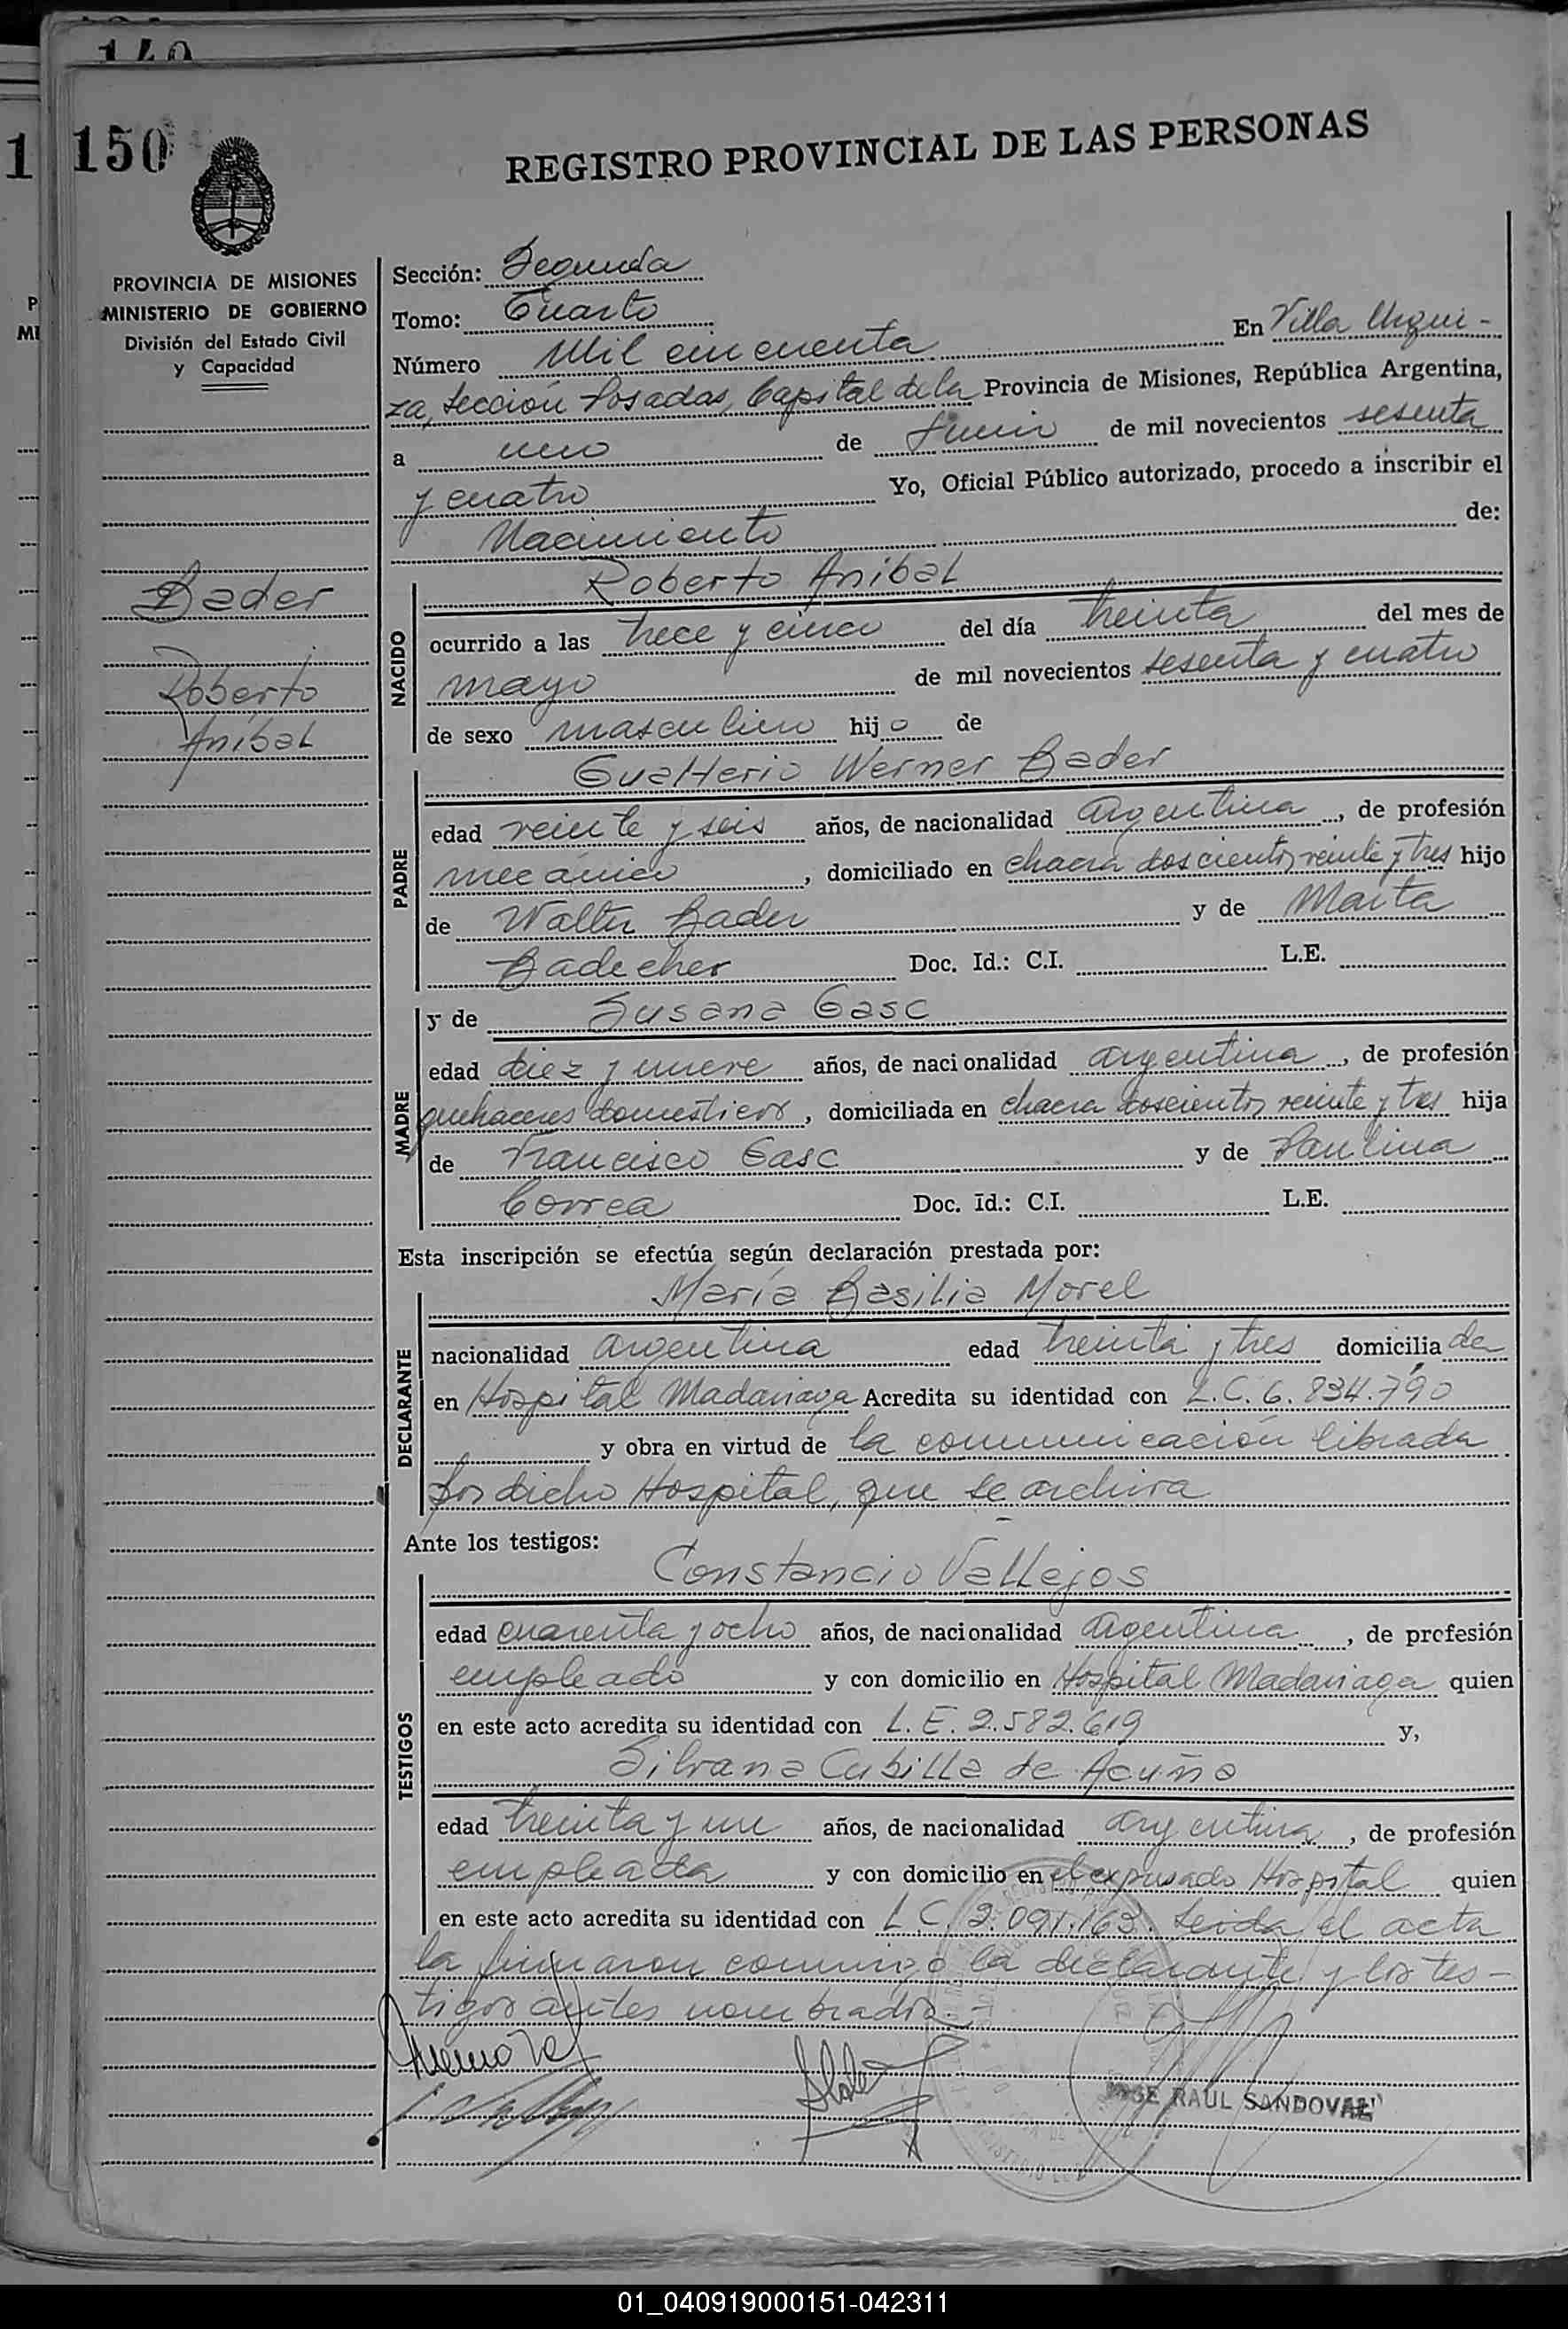 140
1
150
REGISTRO PROVINCIAL DE LAS PERSONAS
PROVINCIA DE MISIONES
MINISTERIO DE GOBIERNO
División del Estado Civil
y Capacidad
P
MI
Bader
Roberto
Aníbal
Sección: Segunda
Tomo: Cuarto
Número Mil cincuenta En Villa Urqui-
za, sección Posadas, Capital de la Provincia de Misiones, República Argentina,
a uno de Junio de mil novecientos sesenta
y cuatro Yo, Oficial Público autorizado, procedo a inscribir el
Nacimiento de:
NACIDO
Roberto Aníbal
ocurrido a las trece y cinco del día treinta del mes de
mayo de mil novecientos sesenta y cuatro
de sexo masculino hijo de
PADRE
Gualterio Werner Bader
edad veinte y seis años, de nacionalidad argentina, de profesión
mecánico, domiciliado en chacra doscientos veinte y tres hijo
de Walter Bader y de Marta
Badecher Doc. Id.: C.I. L.E.
MADRE
y de Susana Gasc
edad diez y nueve años, de nacionalidad argentina, de profesión
quehaceres domésticos, domiciliada en chacra doscientos veinte y tres hija
de Francisco Gasc y de Paulina
Correa Doc. Id.: C.I. L.E.
Esta inscripción se efectúa según declaración prestada por:
DECLARANTE
María Basilia Morel
nacionalidad argentina edad treinta y tres domiciliada
en Hospital Madariaga Acredita su identidad con L.C. 6.834.790
y obra en virtud de la comunicación librada
por dicho Hospital, que se archiva
Ante los testigos:
TESTIGOS
Constancio Vallejos
edad cuarenta y ocho años, de nacionalidad argentina, de profesión
empleado y con domicilio en Hospital Madariaga quien
en este acto acredita su identidad con L.E. 2.582.619 y,
Silvana Cubilla de Acuña
edad treinta y un años, de nacionalidad argentina, de profesión
empleada y con domicilio en el expresado Hospital quien
en este acto acredita su identidad con L.C. 2.091.163. Leida el acta
la firmaron conmigo la declarante y los tes-
tigos antes nombrados.-
JOSE RAUL SANDOVAL
01_040919000151-042311